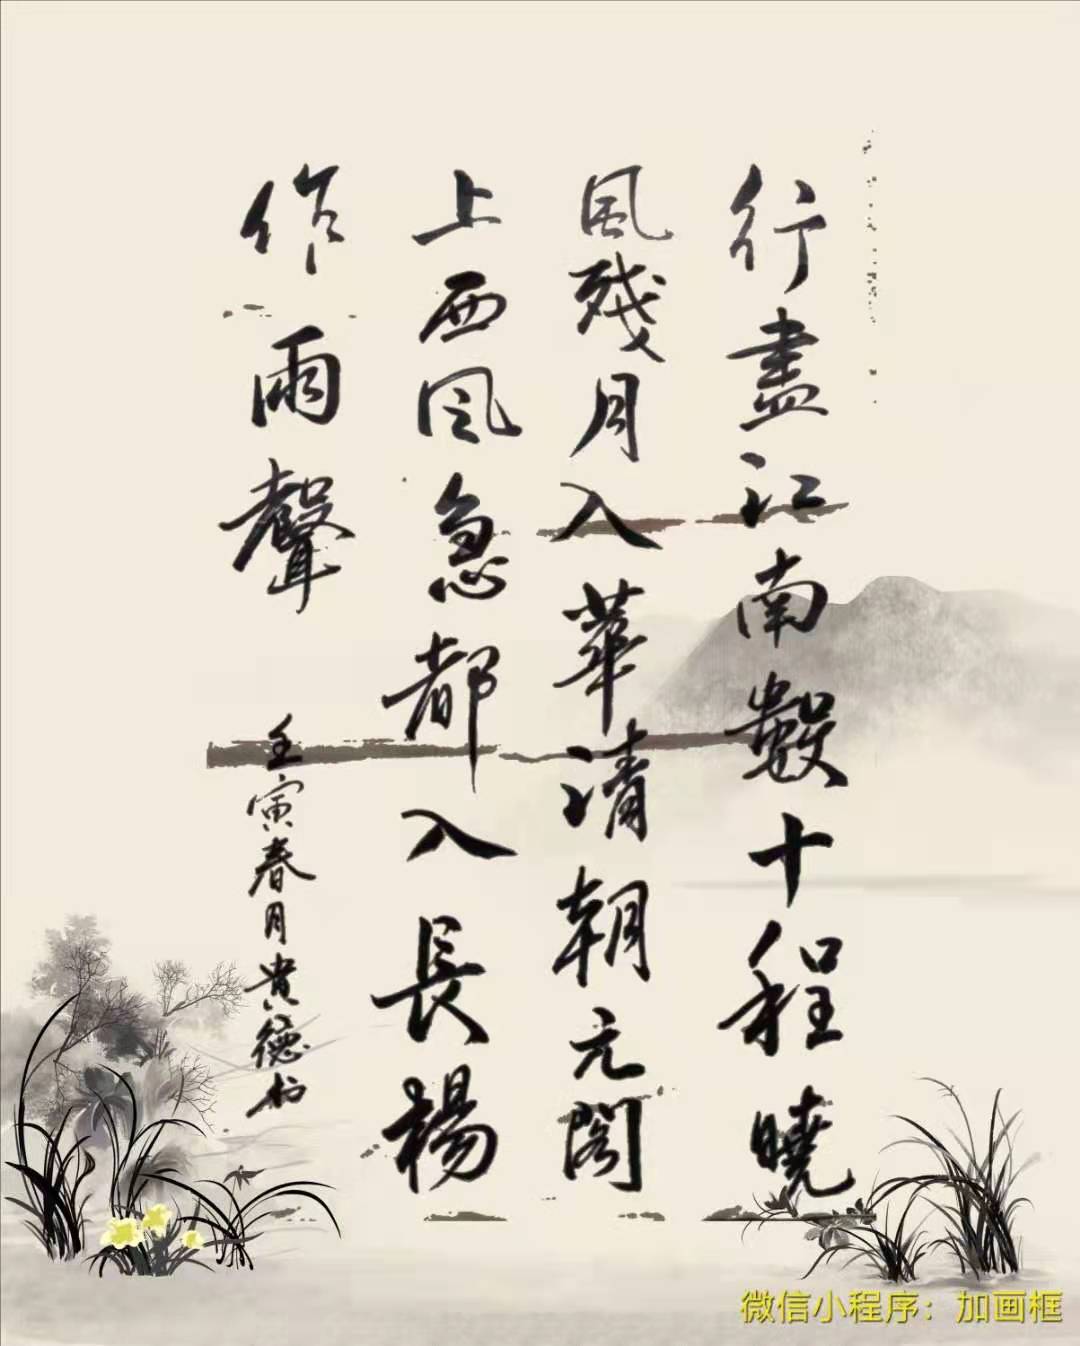 行盡江南數十程曉
風殘月入華清朝元閣
上西风急都入長楊
作雨聲
壬寅春月贵德书
微信小程序：加画框